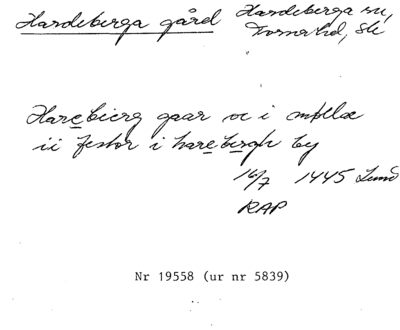 Hardeberga gård Hardeberga sn,
Torna hd, Sk
Harebierg gaar oc i mølle
ii festor i harebergh by
16/7 1445 Lund
RAP
Nr 19558 (ur nr 5839)